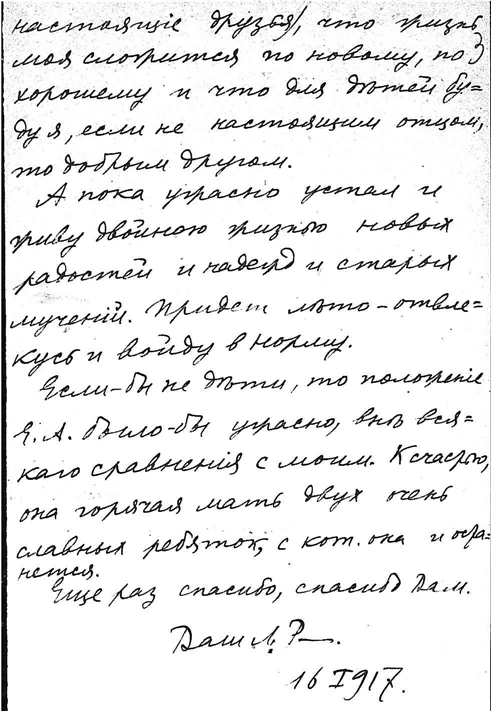 настоящіе друзья, что жизнь
моя сложится по новому, по
хорошему и что для дѣтей бу=
ду я, если не настоящим отцом,
то добрым другом.
А пока ужасно устал и
живу двойною жизнью новых
радостей и надежд и старых
мученій. Придет лѣто – отвле=
кусь и войду в норму.
Если-бы не дѣти, то положеніе
Е. А. было-бы ужасно, внѣ вся=
каго сравненія с моим. К счастью,
она горячая мать двух очень
славных ребяток, с кот. она и оста=
нется.
Еще раз спасибо, спасибо Вам.
Ваш Л. Р
16 I 917.